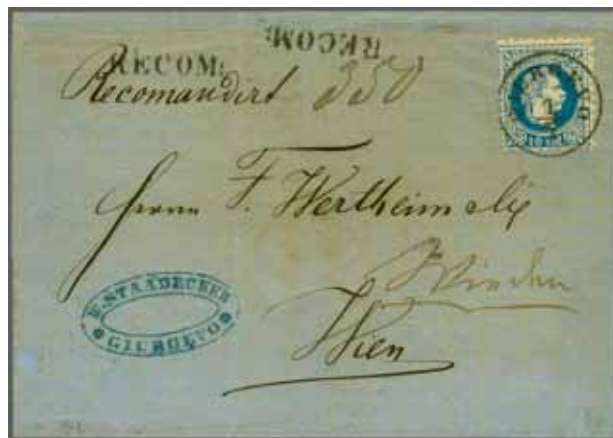 RECOM:
RECOM:
Recomandirt 350
Herrn F. Wertheim &
Wieden
Wien
E. STAADECKER
GIURGEVO